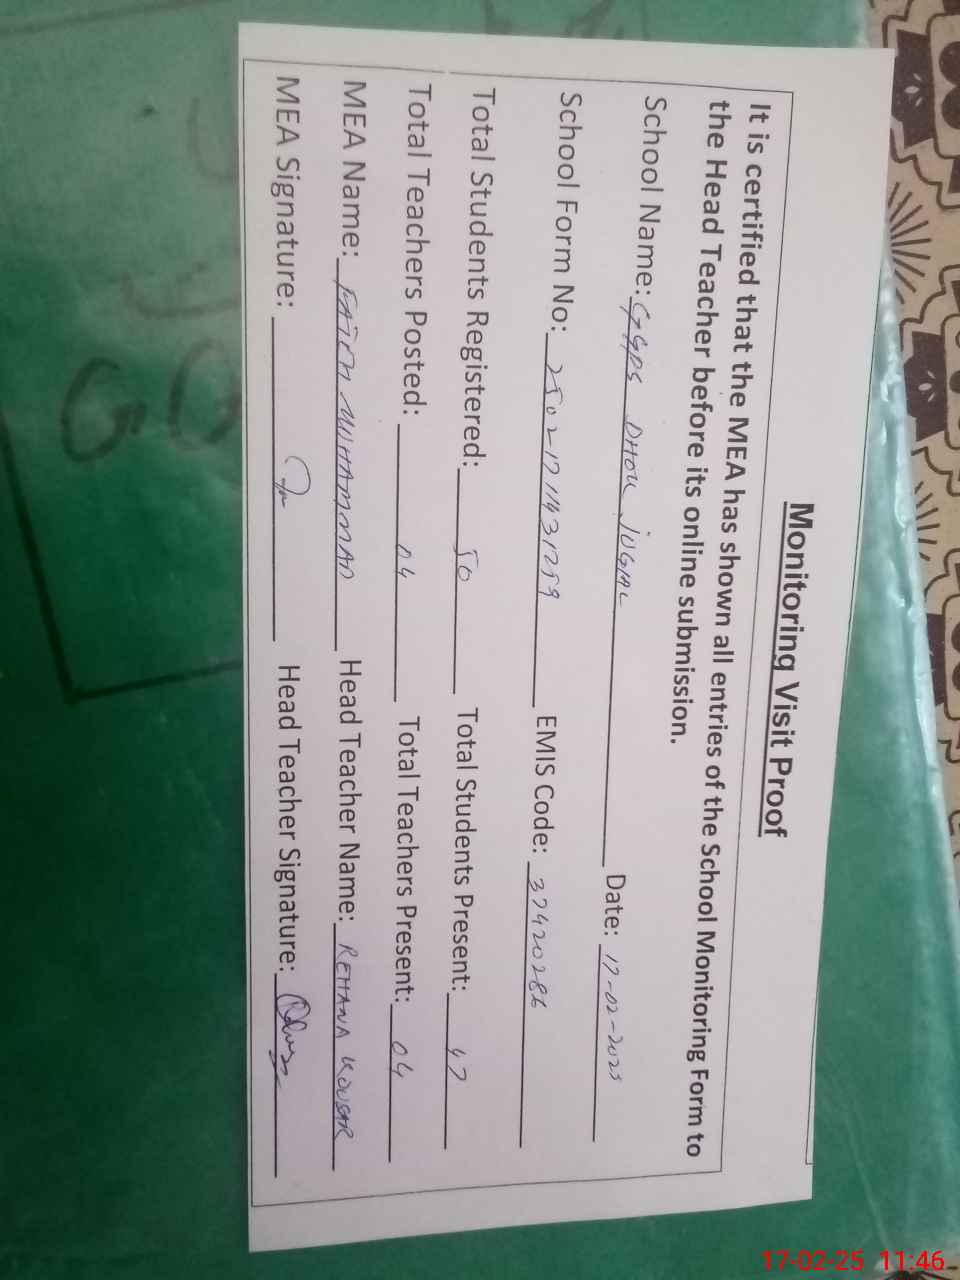 Monitoring Visit Proof
It is certified that the MEA has shown all entries of the School Monitoring Form to
the Head Teacher before its online submission.
School Name: GGPS DHOK JUGIAL Date: 17-02-2025
School Form No: 2502-1711431259 EMIS Code: 37420286
Total Students Registered: 50 Total Students Present: 47
Total Teachers Posted: 04 Total Teachers Present: 04
MEA Name: FATEH MUHAMMAD Head Teacher Name: REHANA KOUSAR
MEA Signature: Head Teacher Signature:
17-02-25 11:46